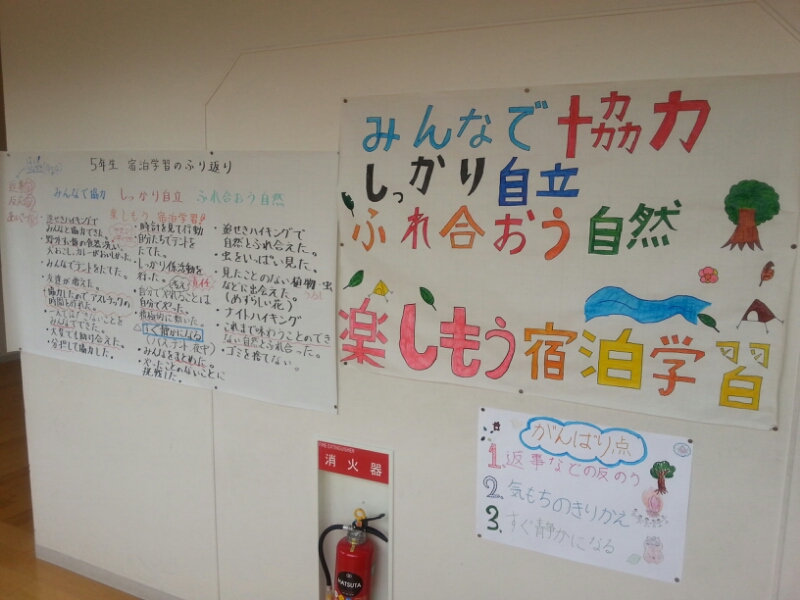 5年生 宿泊学習のふり返り
みんなで協力 しっかり自立 ふれ合おう自然
楽しもう宿泊学習
みんなと協力できた。
みんなでテントをたてた。
友達が増えた。
みんなでできた。
大変でも助け合えた。
分担して協力した。
・時計を見て行動
自分たちでテントを
たてた。
・しっかり係活動を
行った。
・自分でやれることは
自分でやった。
・積極的に動いた。
すぐ静かになる
・みんなをまとめた。
・やったことのないことに
挑戦した。
自然とふれ合えた。
・虫をいっぱい見た。
・見たことのない植物・虫
などに出会えた。
(めずらしい花)
・ナイトハイキング
・これまで味わうことのでき
ない自然とふれ合った。
・ゴミを捨てない。
みんなで協力
しっかり自立
ふれ合おう自然
楽しもう宿泊学習
がんばり点
1.返事などの反のう
2.気もちのきりかえ
3.すぐ静かになる
FIRE EXTINGUISHER
消火器
HATSUTA